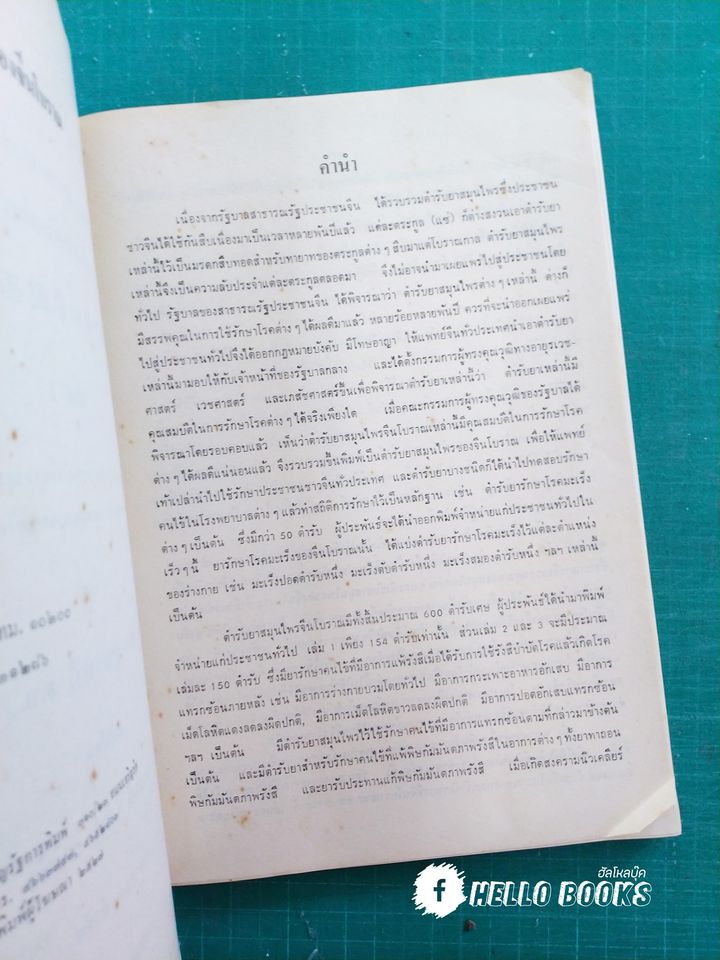 คำนำ
เนื่องจากรัฐบาลสาธารณรัฐประชาชนจีน ได้รวบรวมตำรับยาสมุนไพรซึ่งประชาชน
ชาวจีนได้ใช้กันสืบเนื่องมาเป็นเวลาหลายพันปีแล้ว แต่ละตระกูล (แซ่) ก็ต่างสงวนเอาตำรับยา
เหล่านี้ไว้เป็นมรดกสืบทอดสำหรับทายาทของตระกูลต่าง ๆ สืบมาแต่โบราณกาล ตำรับยาสมุนไพร
เหล่านี้จึงเป็นความลับประจำแต่ละตระกูลตลอดมา จึงไม่อาจนำมาเผยแพร่ไปสู่ประชาชนโดย
ทั่วไป รัฐบาลของสาธารณรัฐประชาชนจีน ได้พิจารณาว่า ตำรับยาสมุนไพรต่าง ๆ เหล่านี้ ต่างก็
มีสรรพคุณในการใช้รักษาโรคต่าง ๆ ได้ผลดีมาแล้ว หลายร้อยหลายพันปี ควรที่จะนำออกเผยแพร่
ไปสู่ประชาชนทั่วไปจึงได้ออกกฎหมายบังคับ มีโทษอาญา ให้แพทย์จีนทั่วประเทศนำเอาตำรับยา
เหล่านี้มามอบให้กับเจ้าหน้าที่ของรัฐบาลกลาง และได้ตั้งกรรมการผู้ทรงคุณวุฒิทางอายุรเวช-
ศาสตร์ เวชศาสตร์ และเภสัชศาสตร์ขึ้นเพื่อพิจารณาตำรับยาเหล่านี้ว่า ตำรับยาเหล่านี้มี
คุณสมบัติในการรักษาโรคต่าง ๆ ได้จริงเพียงใด เมื่อคณะกรรมการผู้ทรงคุณวุฒิของรัฐบาลได้
พิจารณาโดยรอบคอบแล้ว เห็นว่าตำรับยาสมุนไพรจีนโบราณเหล่านี้มีคุณสมบัติในการรักษาโรค
ต่าง ๆ ได้ผลดีแน่นอนแล้ว จึงรวบรวมขึ้นพิมพ์เป็นตำรับยาสมุนไพรของจีนโบราณ เพื่อให้แพทย์
เท้าเปล่านำไปใช้รักษาประชาชนชาวจีนทั่วประเทศ และตำรับยาบางชนิดก็ได้นำไปทดสอบรักษา
คนไข้ในโรงพยาบาลต่าง ๆ แล้วทำสถิติการรักษาไว้เป็นหลักฐาน เช่น ตำรับยารักษาโรคมะเร็ง
ต่าง ๆ เป็นต้น ซึ่งมีกว่า 50 ตำรับ ผู้ประพันธ์จะได้นำออกพิมพ์จำหน่ายแก่ประชาชนทั่วไปใน
เร็ว ๆ นี้ ยารักษาโรคมะเร็งของจีนโบราณนั้น ได้แบ่งตำรับยารักษาโรคมะเร็งไว้แต่ละตำแหน่ง
ของร่างกาย เช่น มะเร็งปอดตำรับหนึ่ง มะเร็งตับตำรับหนึ่ง มะเร็งสมองตำรับหนึ่ง ฯลฯ เหล่านี้
เป็นต้น
ตำรับยาสมุนไพรจีนโบราณมีทั้งสิ้นประมาณ 600 ตำรับเศษ ผู้ประพันธ์ได้นำมาพิมพ์
จำหน่ายแก่ประชาชนทั่วไป เล่ม 1 เพียง 154 ตำรับเท่านั้น ส่วนเล่ม 2 และ 3 จะมีประมาณ
เล่มละ 150 ตำรับ ซึ่งมียารักษาคนไข้ที่มีอาการแพ้รังสีเมื่อได้รับการใช้รังสีบำบัดโรคแล้วเกิดโรค
แทรกซ้อนภายหลัง เช่น มีอาการร่างกายบวมโดยทั่วไป มีอาการกระเพาะอาหารอักเสบ มีอาการ
เม็ดโลหิตแดงลดลงผิดปกติ, มีอาการเม็ดโลหิตขาวลดลงผิดปกติ มีอาการปอดอักเสบแทรกซ้อน
ฯลฯ เป็นต้น มีตำรับยาสมุนไพรไว้ใช้รักษาคนไข้ที่มีอาการแทรกซ้อนตามที่กล่าวมาข้างต้น
เป็นต้น และมีตำรับยาสำหรับรักษาคนไข้ที่แพ้พิษกัมมันตภาพรังสีในอาการต่าง ๆ ทั้งยาทาถอน
พิษกัมมันตภาพรังสี และยารับประทานแก้พิษกัมมันตภาพรังสี เมื่อเกิดสงครามนิวเคลียร์
ทม. ๑๐๒๐๐
รัฐการพิมพ์
พิมพ์ผู้โฆษณา ๒๕๒๘
ฮัลโหลบุ๊ค
f HELLO BOOKS